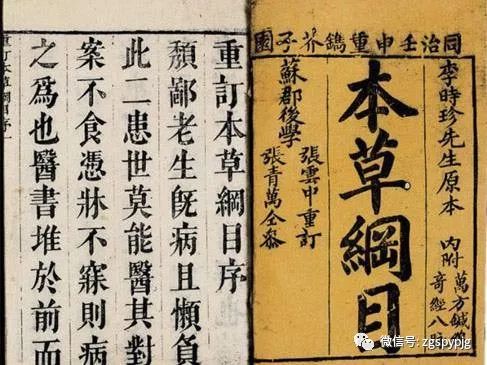 同治壬申重鐫芥子園
李時珍先生原本
內附
萬方鍼
奇經八
本草綱目
蘇郡後學
張雲中重訂
張青萬仝參
重訂本草綱目序
頹鄙老生旣病且懶負
此二患世莫能醫其對
案不食憑牀不寐則病
之爲也醫書堆於前而
微信号: zgspypjg